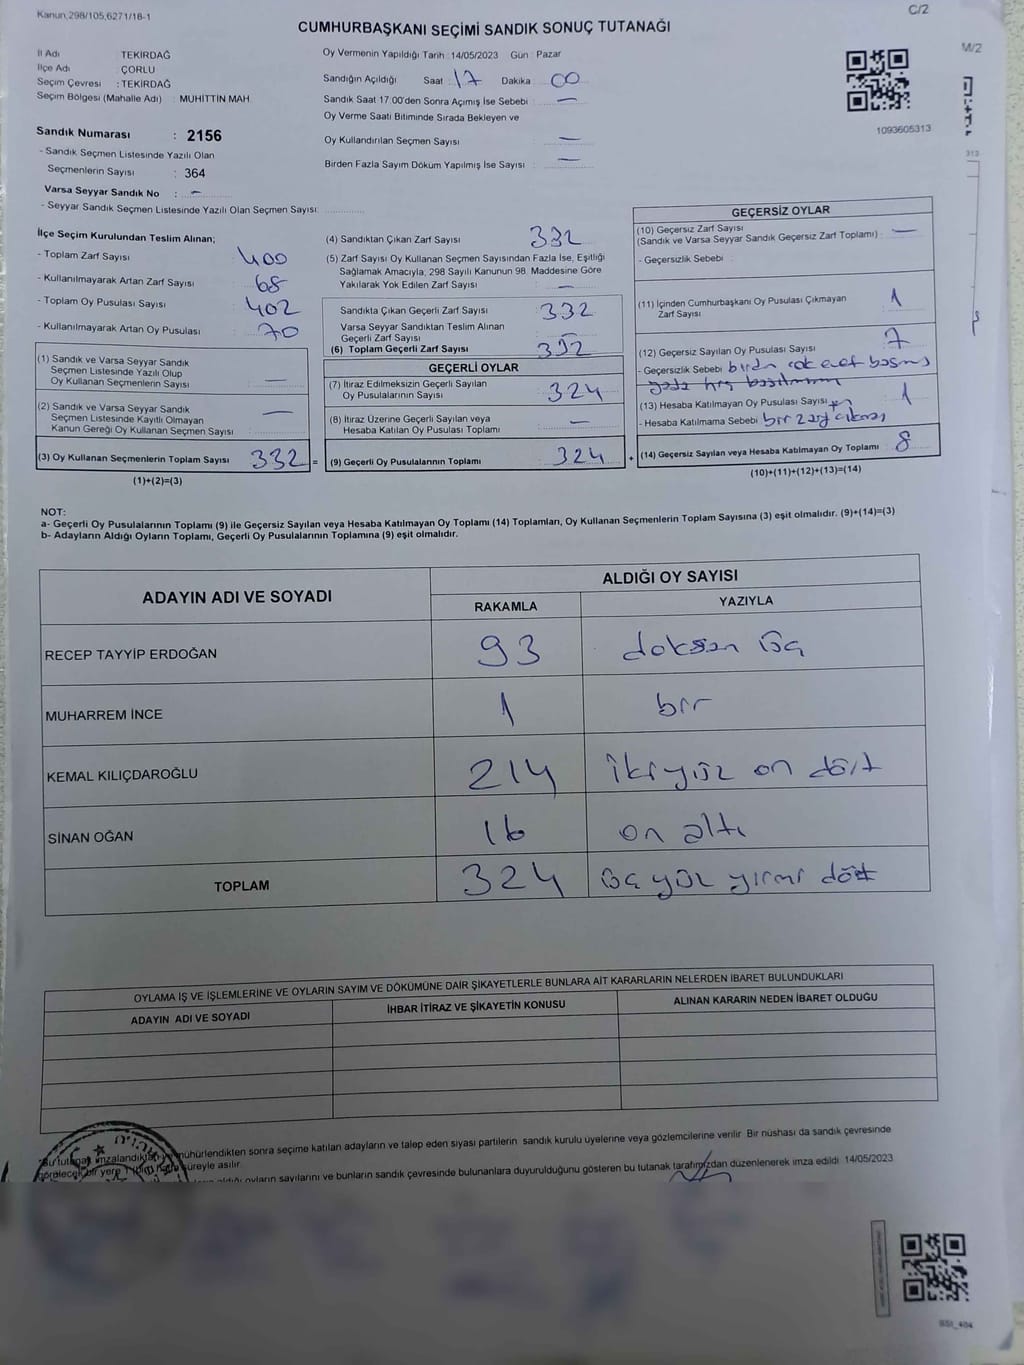 Kanun,298/105,6271/18-1
C/2
M/2
CUMHURBAŞKANI SEÇİMİ SANDIK SONUÇ TUTANAĞI
İl Adı TEKİRDAĞ
İlçe Adı ÇORLU
Seçim Çevresi : TEKİRDAĞ
Seçim Bölgesi (Mahalle Adı) : MUHİTTİN MAH.
Sandık Numarası : 2156
- Sandık Seçmen Listesinde Yazılı Olan
Seçmenlerin Sayısı : 364
Varsa Seyyar Sandık No : -
- Seyyar Sandık Seçmen Listesinde Yazılı Olan Seçmen Sayısı:
Oy Vermenin Yapıldığı Tarih :14/05/2023 Gün : Pazar
Sandığın Açıldığı Saat : 17 Dakika : 00
Sandık Saat 17:00'den Sonra Açımış İse Sebebi : -
Oy Verme Saati Bitiminde Sırada Bekleyen ve
Oy Kullandırılan Seçmen Sayısı : -
Birden Fazla Sayım Döküm Yapılmış İse Sayısı : -
1093605313
313
İlçe Seçim Kurulundan Teslim Alınan;
- Toplam Zarf Sayısı : 400
- Kullanılmayarak Artan Zarf Sayısı : 68
- Toplam Oy Pusulası Sayısı : 402
- Kullanılmayarak Artan Oy Pusulası : 70
(1) Sandık ve Varsa Seyyar Sandık
Seçmen Listesinde Yazılı Olup
Oy Kullanan Seçmenlerin Sayısı : -
(2) Sandık ve Varsa Seyyar Sandık
Seçmen Listesinde Kayıtlı Olmayan
Kanun Gereği Oy Kullanan Seçmen Sayısı : -
(3) Oy Kullanan Seçmenlerin Toplam Sayısı 332 =
(1)+(2)=(3)
(4) Sandıktan Çıkan Zarf Sayısı : 332
(5) Zarf Sayısı Oy Kullanan Seçmen Sayısından Fazla İse, Eşitliği
Sağlamak Amacıyla, 298 Sayılı Kanunun 98. Maddesine Göre
Yakılarak Yok Edilen Zarf Sayısı : -
Sandıkta Çıkan Geçerli Zarf Sayısı : 332
Varsa Seyyar Sandıktan Teslim Alınan
Geçerli Zarf Sayısı : -
(6) Toplam Geçerli Zarf Sayısı : 332
GEÇERLİ OYLAR
(7) İtiraz Edilmeksizin Geçerli Sayılan
Oy Pusulalarının Sayısı : 324
(8) İtiraz Üzerine Geçerli Sayılan veya
Hesaba Katılan Oy Pusulası Toplamı : -
(9) Geçerli Oy Pusulalarının Toplamı : 324 +
GEÇERSİZ OYLAR
(10) Geçersiz Zarf Sayısı
(Sandık ve Varsa Seyyar Sandık Geçersiz Zarf Toplamı) : -
- Geçersizlik Sebebi :
(11) İçinden Cumhurbaşkanı Oy Pusulası Çıkmayan
Zarf Sayısı : 1
(12) Geçersiz Sayılan Oy Pusulası Sayısı : 7
- Geçersizlik Sebebi birden çok evet basmış
yada hiç basılmamış
(13) Hesaba Katılmayan Oy Pusulası Sayısı : 1
- Hesaba Katılmama Sebebi bir zarf çıkması
(14) Geçersiz Sayılan veya Hesaba Katılmayan Oy Toplamı : 8
(10)+(11)+(12)+(13)=(14)
NOT:
a- Geçerli Oy Pusulalarının Toplamı (9) ile Geçersiz Sayılan veya Hesaba Katılmayan Oy Toplamı (14) Toplamları, Oy Kullanan Seçmenlerin Toplam Sayısına (3) eşit olmalıdır. (9)+(14)=(3)
b- Adayların Aldığı Oyların Toplamı, Geçerli Oy Pusulalarının Toplamına (9) eşit olmalıdır.
ADAYIN ADI VE SOYADI ALDIĞI OY SAYISI
RAKAMLA YAZIYLA
RECEP TAYYİP ERDOĞAN 93 doksan üç
MUHARREM İNCE 1 bir
KEMAL KILIÇDAROĞLU 214 ikiyüz on dört
SİNAN OĞAN 16 on altı
TOPLAM 324 üç yüz yirmi dört
OYLAMA İŞ VE İŞLEMLERİNE VE OYLARIN SAYIM VE DÖKÜMÜNE DAİR ŞİKAYETLERLE BUNLARA AİT KARARLARIN NELERDEN İBARET BULUNDUKLARI
ADAYIN ADI VE SOYADI İHBAR İTİRAZ VE ŞİKAYETİN KONUSU ALINAN KARARIN NEDEN İBARET OLDUĞU
*Bu tutanak imzalandıktan mühürlendikten sonra seçime katılan adayların ve talep eden siyasi partilerin sandık kurulu üyelerine veya gözlemcilerine verilir. Bir nüshası da sandık çevresinde
görülecek bir yere 1 süreyle asılır.
aldığı oyların sayılarını ve bunların sandık çevresinde bulunanlara duyurulduğunu gösteren bu tutanak tarafımızdan düzenlenerek imza edildi. 14/05/2023